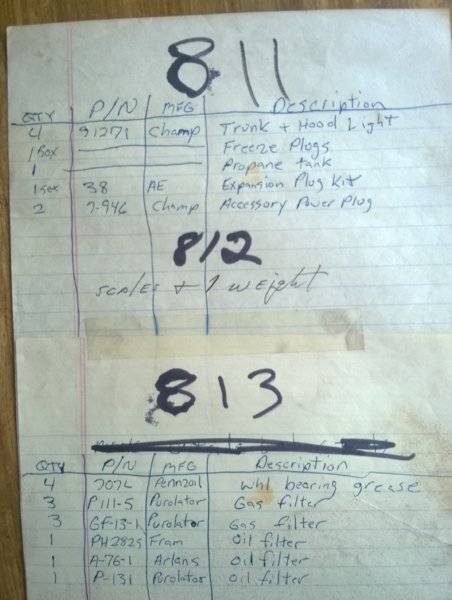 811
QTY P/N MFG Description
4 91271 Champ Trunk + Hood Light
1 Box Freeze Plogs
1 Propane tank
1 Box 38 AE Expansion Plug Kit
2 7-946 Champ Accessory Power Plug
812
scales + 1 weight
813
QTY P/N MFG Description
4 707L Pennzoil whl bearing grease
3 P111-5 Purolator Gas filter
3 GF-13-1 Purolator Gas filter
1 PH2825 Fram Oil filter
1 A-76-1 Arlans Oil filter
1 P-131 Purolator Oil filter